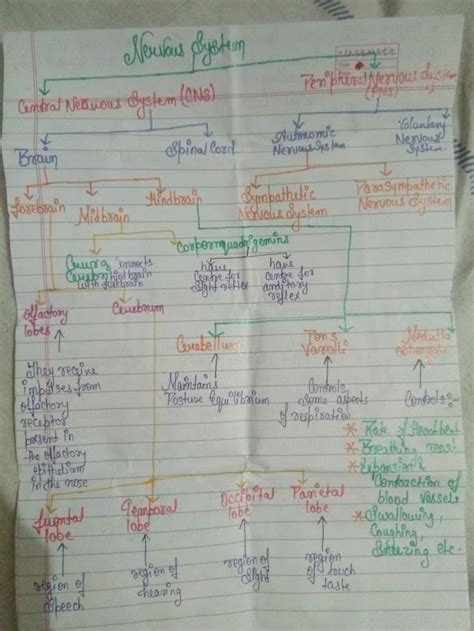 Nervous System
Central Nervous System (CNS)
Peripheral Nervous System
(PNS)
Brain
Spinal Cord
Autonomic
Nervous System
Voluntary
Nervous
System
Forebrain
Midbrain
Hindbrain
Sympathetic
Nervous System
Parasympathetic
Nervous System
Corporaquadrigemins
Crura
Cerebri
connects
hindbrain
with forebrain
have
centre for
sight reflex
have
centre for
auditory
reflex
Olfactory
lobes
Cerebrum
Cerebellum
Pons
Varolli
Medulla
oblongata
They receive
impulses from
olfactory
receptor
present in
the olfactory
epithelium
in the nose
Maintains
Posture Equilibrium
Controls
some aspects
of respiration
Controls:-
* Rate of Heartbeat
* Breathing
* Expansion &
Contraction of
blood vessels
* Swallowing,
Coughing,
Sneezing etc.
Frontal
lobe
Temporal
lobe
Occipital
lobe
Parietal
lobe
region of
speech
region of
hearing
region of
sight
region
of touch
taste